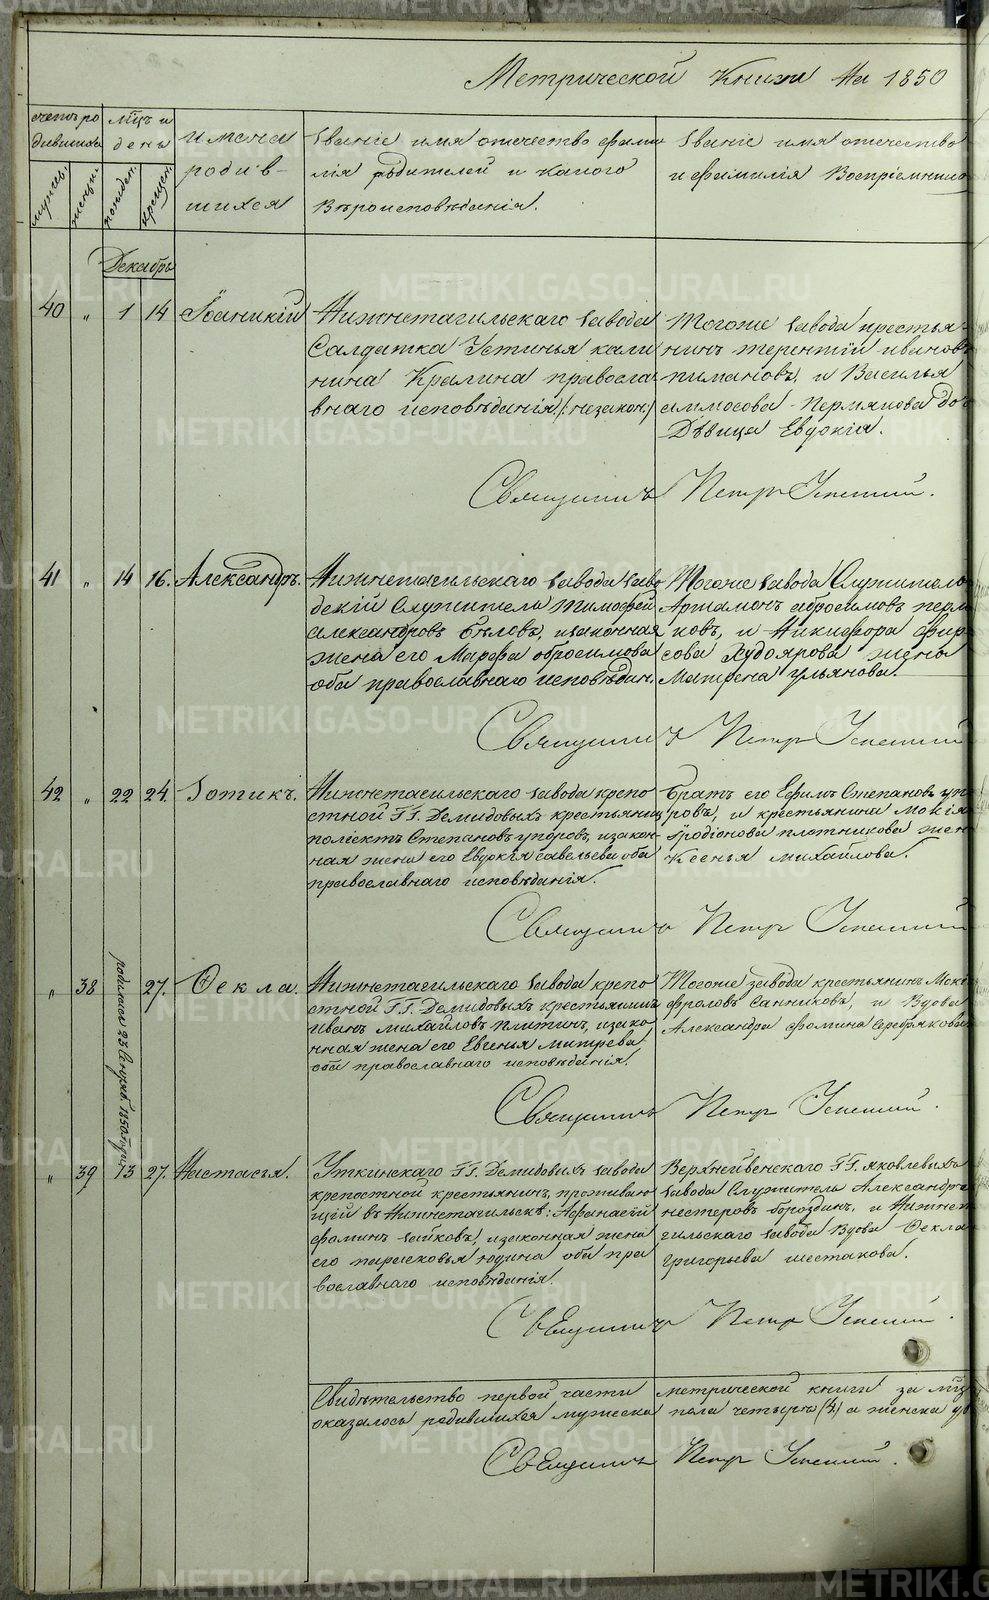 Метрической Книги на 1850
счетъ ро
дившихся
мѣцъ и
день
имена
родив-
шихся
Званіе имя отечество фами
лія родителей и какого
Вѣроисповѣданія.
Званіе имя отечество
и фамилія Воспріемнико
мужеск.
женск.
рожден.
крещен.
Декабрь
40 " 1 14 Іоаникій
Нижнетагильскаго завода
Салдатка Устинья кали
нина Кралина правосла-
внаго исповѣданія (:незакон:)
Тогоже завода крестья-
нинъ терентій ивановъ
пимановъ, и Василья
аммосова Пермякова до
Дѣвица Евдокія.
Священникъ Петръ Успенскій.
41 " 14 16. Александръ.
Нижнетагильскаго завода заво
дскій Служитель Тимофей
Александровъ Бѣловъ, изаконная
жена его Марфа обросимова
оба православнаго исповѣдан.
Тогоже завода Служитель
Артамонъ абросимовъ перм
ковъ, и Никифора фир
сова Худоярова жена
Матрена ульянова.
Священникъ Петръ Успенскій
42 " 22 24. Готикъ.
Нижнетагильскаго завода крепо
стной Г.Г. Демидовыхъ крестьянин
поліектъ Степановъ упоровъ, изакон-
ная жена его Евдокія савельева оба
православнаго исповѣданія.
Братъ его Ефимъ Степановъ упо
ровъ, и крестьянина Мокія
Іродіонова плотникова жен
Ксенья михайлова.
Священникъ Петръ Успенскій
" 38 27. Ѳекла.
родилась 23
1850 года
Нижнетагильскаго завода крепо
стной Г.Г. Демидовыхъ крестьянинъ
Иванъ михайловъ плитинъ, изако-
нная жена его Евгенья митрева
оба православнаго исповѣданія.
Тогоже завода крестьянинъ Моке
фроловъ Санниковъ, и Вдова
Александра фомина серебряков
Священникъ Петръ Успенскій.
" 39 13 27. Настасья.
Уткинскаго Г.Г. Демидовыхъ завода
крепостной крестьянинъ, проживаю
щій въ Нижнетагильскѣ: Афанасій
фоминъ зайковъ, изаконная жена
его парасковья юдина оба пра
вославнаго исповѣданія.
Верхнейвенскаго Г.Г. яковлевыхъ
завода Служитель Александръ
нестеровъ бороздинъ, и Нижнета
гильскаго завода Вдова Ѳекла
григорьева шестакова.
Священникъ Петръ Успенскій.
Свидѣтельство первой части метрической книги за мѣ
оказалось родившихся мужеска пола четыре (4) а женска
Священникъ Петръ Успенскій.
METRIKI.GASO-URAL.RU